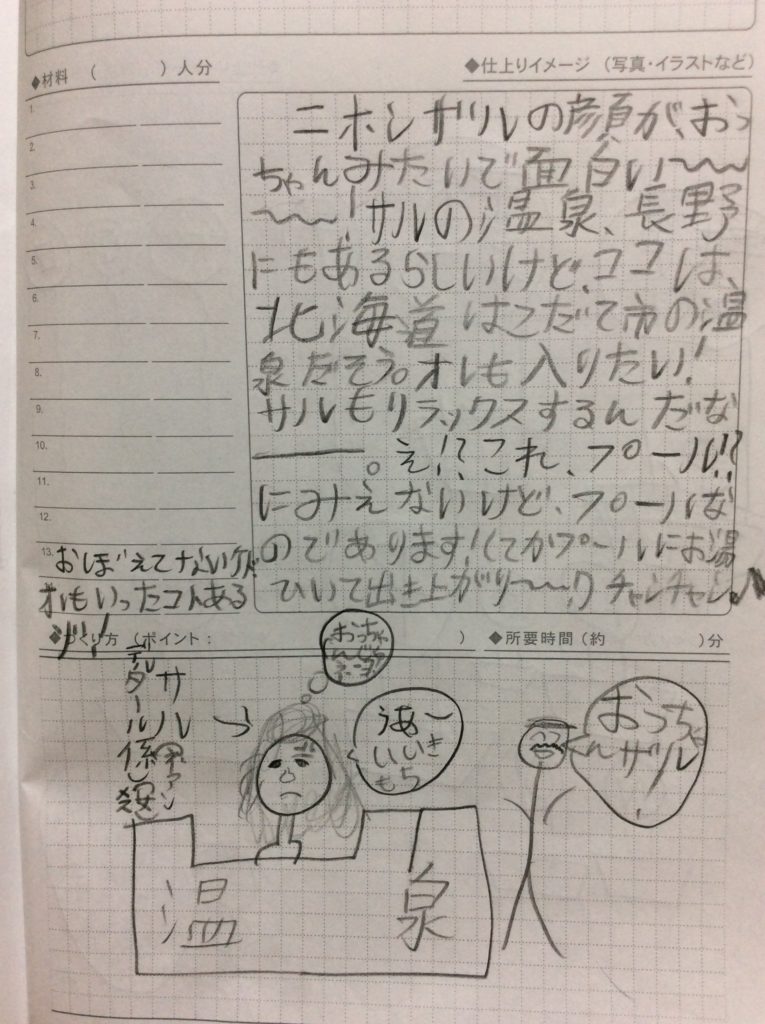 ◆材料 ( ) 人分
◆仕上りイメージ (写真・イラストなど)
1.
2.
3.
4.
5.
6.
7.
8.
9.
10.
11.
12.
13.
ニホンザルの顔が、おっ
ちゃんみたいで面白い〜〜
〜〜!サルの温泉、長野
にもあるらしいけど、ココは、
北海道はこだて市の温
泉だそう。オレも入りたい!
サルもリラックスするんだな
ー。え!?これ、プール!?
にみえないけど、プールな
のであります!てかプールにお湯
ひいて出き上がり〜〜!?チャンチャン♪
おぼえてないケド
オレもいったコトある
ゾ!
◆つくり方 (ポイント: )
◆所要時間 (約 )分
おっちゃ
サル
デルタール係
→
あー
いきもち
うい
おっちゃ
んザル
!
温泉